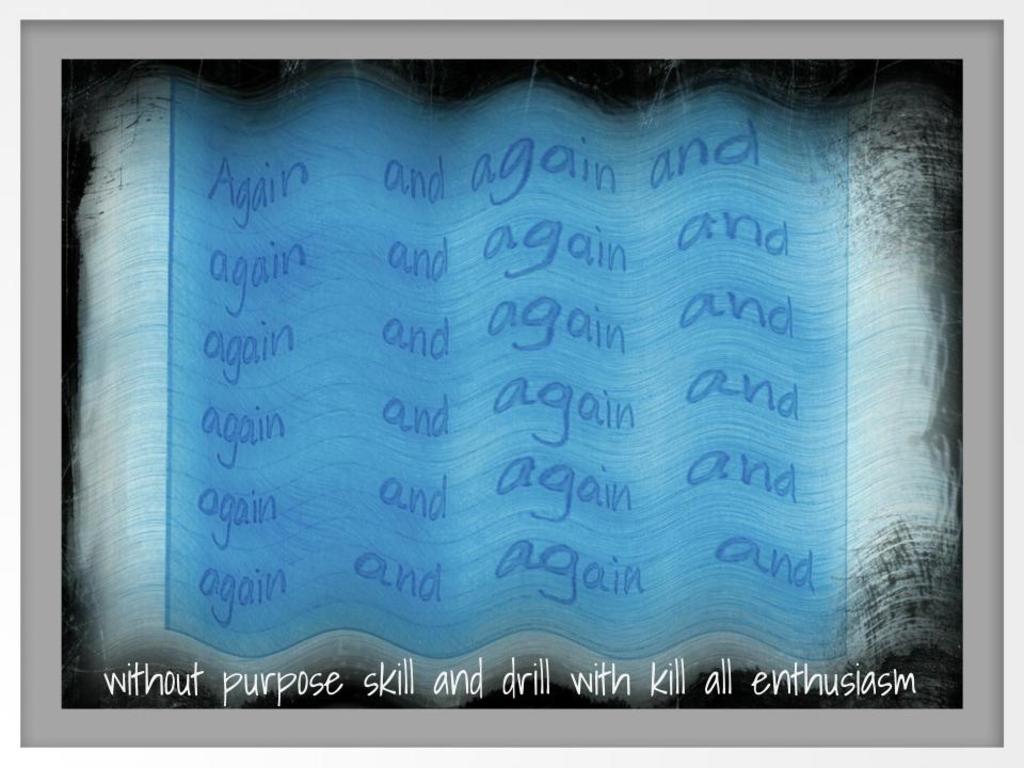 Again and again and
again and again and
again and again and
again and again and
again and again and
again and again and
without purpose skill and drill with kill all enthusiasm